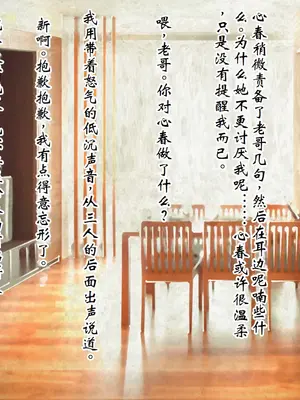 心春稍微责备了老哥几句，然后在耳边呢喃些什
么。为什么她不更讨厌我呢……心春或许很温柔
，只是没有提醒我而已。
喂，老哥。你对心春做了什么？
我用带着怒气的低沉声音，从三人的后面出声说道。
新啊。抱歉抱歉，我有点得意忘形了。